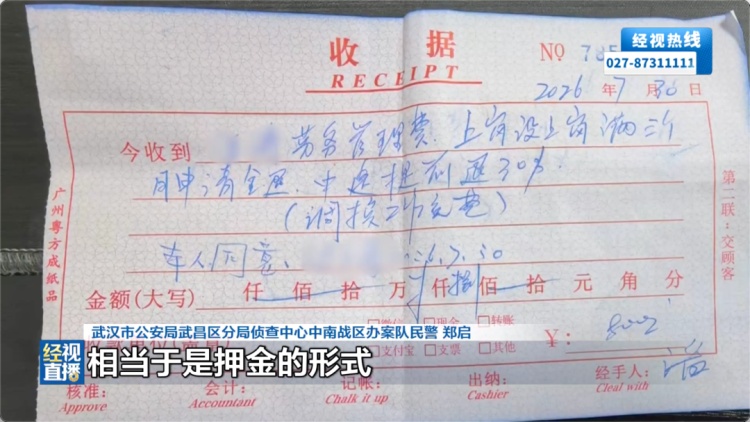 经视热线
027-87311111
收据
RECEIPT
№ 785
2026年7月30日
今收到 劳务管理费.上岗没上岗满三个
月申请全退.中途提前退30%.
(调换工作免费)
本人同意. 26.7.30
金额(大写) 仟佰拾万捌仟佰拾元角分
现金 转账
支付宝 支票 其他
¥: 8000
核准: 会计: 记帐: 出纳: 经手人:
Approve Accountant Chalk it up Cashier Cleal with
广州粤方成纸品
第二联:交顾客
武汉市公安局武昌区分局侦查中心中南战区办案队民警 郑启
经视直播
相当于是押金的形式